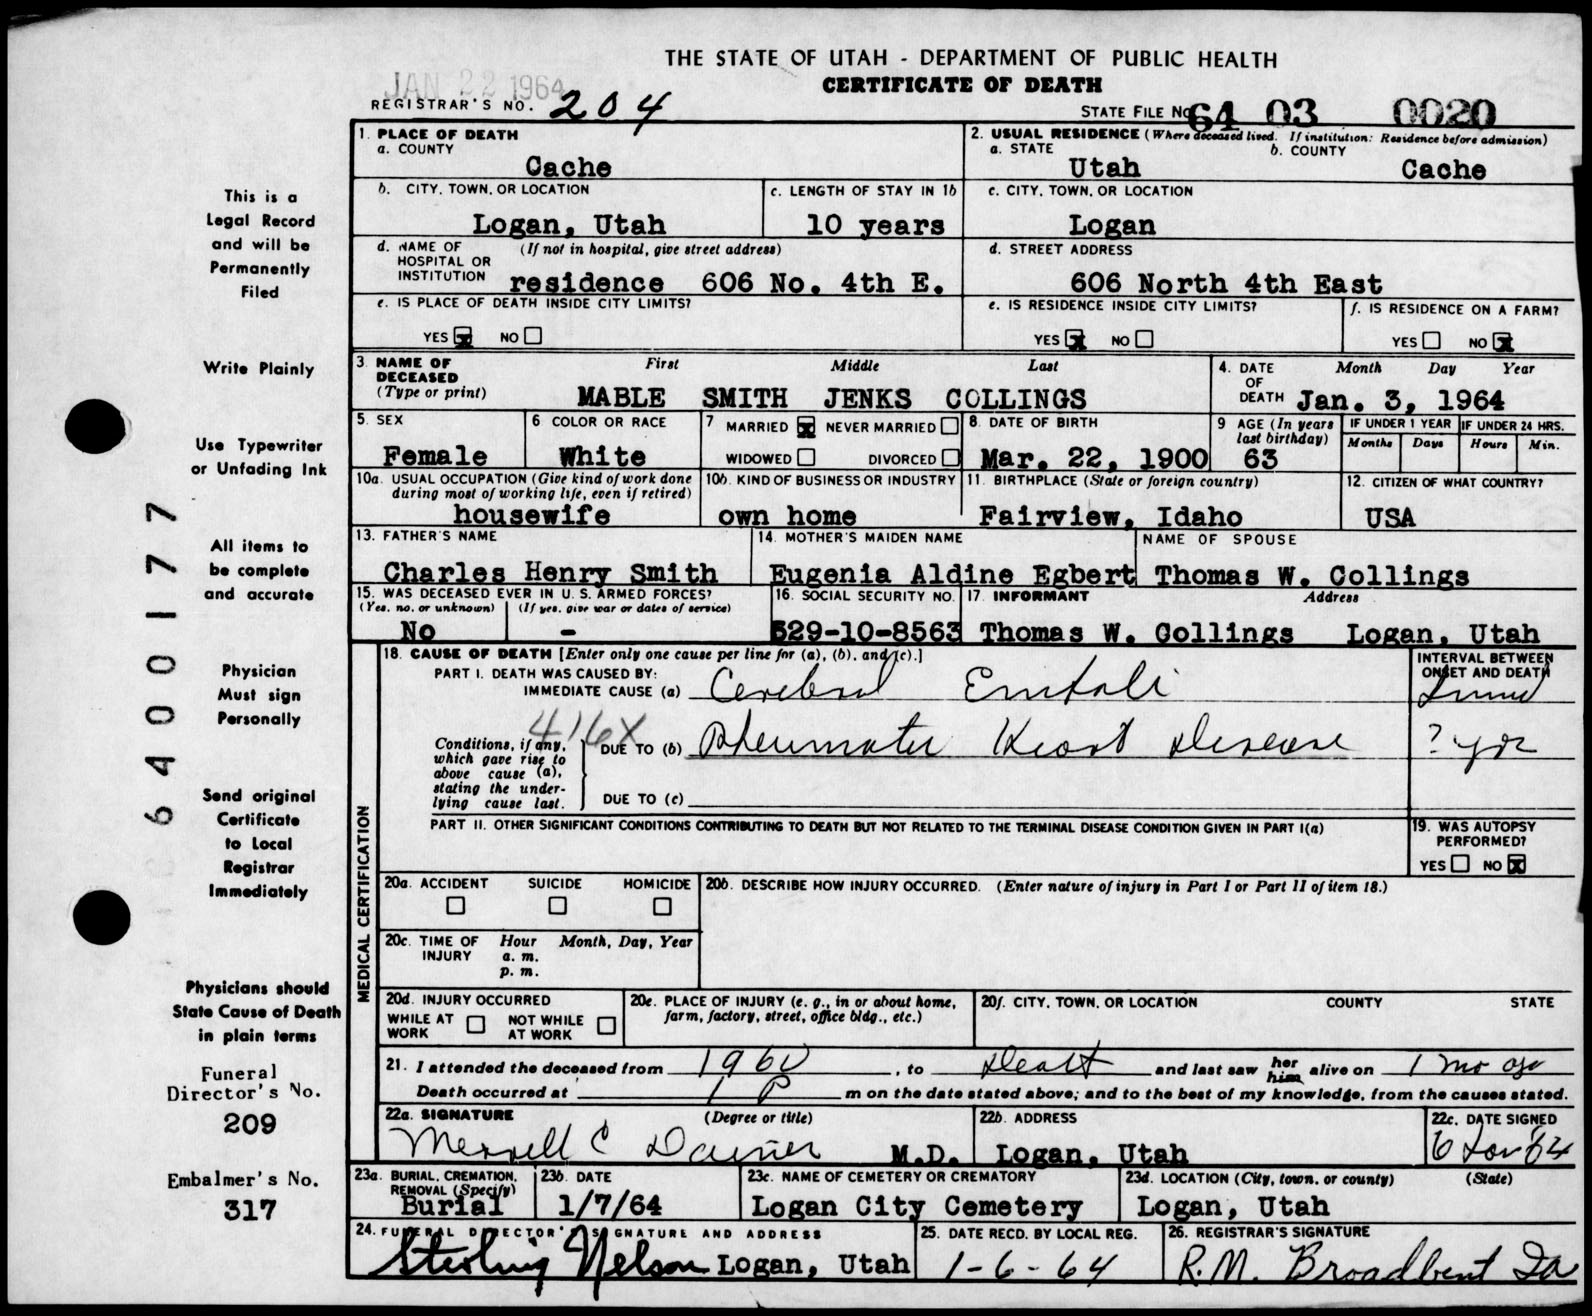 THE STATE OF UTAH - DEPARTMENT OF PUBLIC HEALTH
CERTIFICATE OF DEATH
JAN 22 1964
REGISTRAR'S NO. 204
STATE FILE NO. 64 03 0020
1. PLACE OF DEATH
a. COUNTY
Cache
2. USUAL RESIDENCE (Where deceased lived. If institution: Residence before admission)
a. STATE b. COUNTY
Utah Cache
b. CITY, TOWN, OR LOCATION
Logan, Utah
c. LENGTH OF STAY IN 1b
10 years
c. CITY, TOWN, OR LOCATION
Logan
d. NAME OF HOSPITAL OR INSTITUTION (If not in hospital, give street address)
residence 606 No. 4th E.
d. STREET ADDRESS
606 North 4th East
e. IS PLACE OF DEATH INSIDE CITY LIMITS?
YES x NO
e. IS RESIDENCE INSIDE CITY LIMITS?
YES x NO
f. IS RESIDENCE ON A FARM?
YES NO x
3. NAME OF DECEASED (Type or print)
First Middle Last
MABLE SMITH JENKS COLLINGS
4. DATE OF DEATH
Month Day Year
Jan. 3, 1964
5. SEX
Female
6 COLOR OR RACE
White
7 MARRIED x NEVER MARRIED
WIDOWED DIVORCED
8. DATE OF BIRTH
Mar. 22, 1900
9 AGE (In years last birthday)
63
IF UNDER 1 YEAR
Months Days
IF UNDER 24 HRS.
Hours Min.
10a. USUAL OCCUPATION (Give kind of work done
during most of working life, even if retired)
housewife
10b. KIND OF BUSINESS OR INDUSTRY
own home
11. BIRTHPLACE (State or foreign country)
Fairview, Idaho
12. CITIZEN OF WHAT COUNTRY?
USA
13. FATHER'S NAME
Charles Henry Smith
14. MOTHER'S MAIDEN NAME
Eugenia Aldine Egbert
NAME OF SPOUSE
Thomas W. Collings
15. WAS DECEASED EVER IN U.S. ARMED FORCES?
(Yes, no, or unknown) (If yes, give war or dates of service)
No -
16. SOCIAL SECURITY NO.
529-10-8563
17. INFORMANT Address
Thomas W. Collings Logan, Utah
MEDICAL CERTIFICATION
18. CAUSE OF DEATH [Enter only one cause per line for (a), (b), and (c).]
PART I. DEATH WAS CAUSED BY:
IMMEDIATE CAUSE (a) Cerebral Emboli
INTERVAL BETWEEN
ONSET AND DEATH
416X
Conditions, if any,
which gave rise to
above cause (a),
stating the under-
lying cause last.
DUE TO (b) Rheumatic Heart Disease
? yrs
DUE TO (c)
PART II. OTHER SIGNIFICANT CONDITIONS CONTRIBUTING TO DEATH BUT NOT RELATED TO THE TERMINAL DISEASE CONDITION GIVEN IN PART I(a)
19. WAS AUTOPSY
PERFORMED?
YES NO x
20a. ACCIDENT SUICIDE HOMICIDE
20b. DESCRIBE HOW INJURY OCCURRED. (Enter nature of injury in Part I or Part II of item 18.)
20c. TIME OF INJURY
Hour Month, Day, Year
a. m.
p. m.
20d. INJURY OCCURRED
WHILE AT WORK NOT WHILE AT WORK
20e. PLACE OF INJURY (e. g., in or about home,
farm, factory, street, office bldg., etc.)
20f. CITY, TOWN, OR LOCATION COUNTY STATE
21. I attended the deceased from 1960, to Death and last saw her him alive on 1 mo ago
Death occurred at 1 P m on the date stated above; and to the best of my knowledge, from the causes stated.
22a. SIGNATURE (Degree or title)
Merrell C Daines M.D.
22b. ADDRESS
Logan, Utah
22c. DATE SIGNED
6 Jan 64
23a. BURIAL, CREMATION,
REMOVAL (Specify)
Burial
23b. DATE
1/7/64
23c. NAME OF CEMETERY OR CREMATORY
Logan City Cemetery
23d. LOCATION (City, town, or county) (State)
Logan, Utah
24. FUNERAL DIRECTOR'S SIGNATURE AND ADDRESS
Sterling Nelson Logan, Utah
25. DATE RECD. BY LOCAL REG.
1-6-64
26. REGISTRAR'S SIGNATURE
R.M. Broadbent
This is a
Legal Record
and will be
Permanently
Filed
Write Plainly
Use Typewriter
or Unfading Ink
All items to
be complete
and accurate
Physician
Must sign
Personally
Send original
Certificate
to Local
Registrar
Immediately
Physicians should
State Cause of Death
in plain terms
Funeral
Director's No.
209
Embalmer's No.
317
6400177